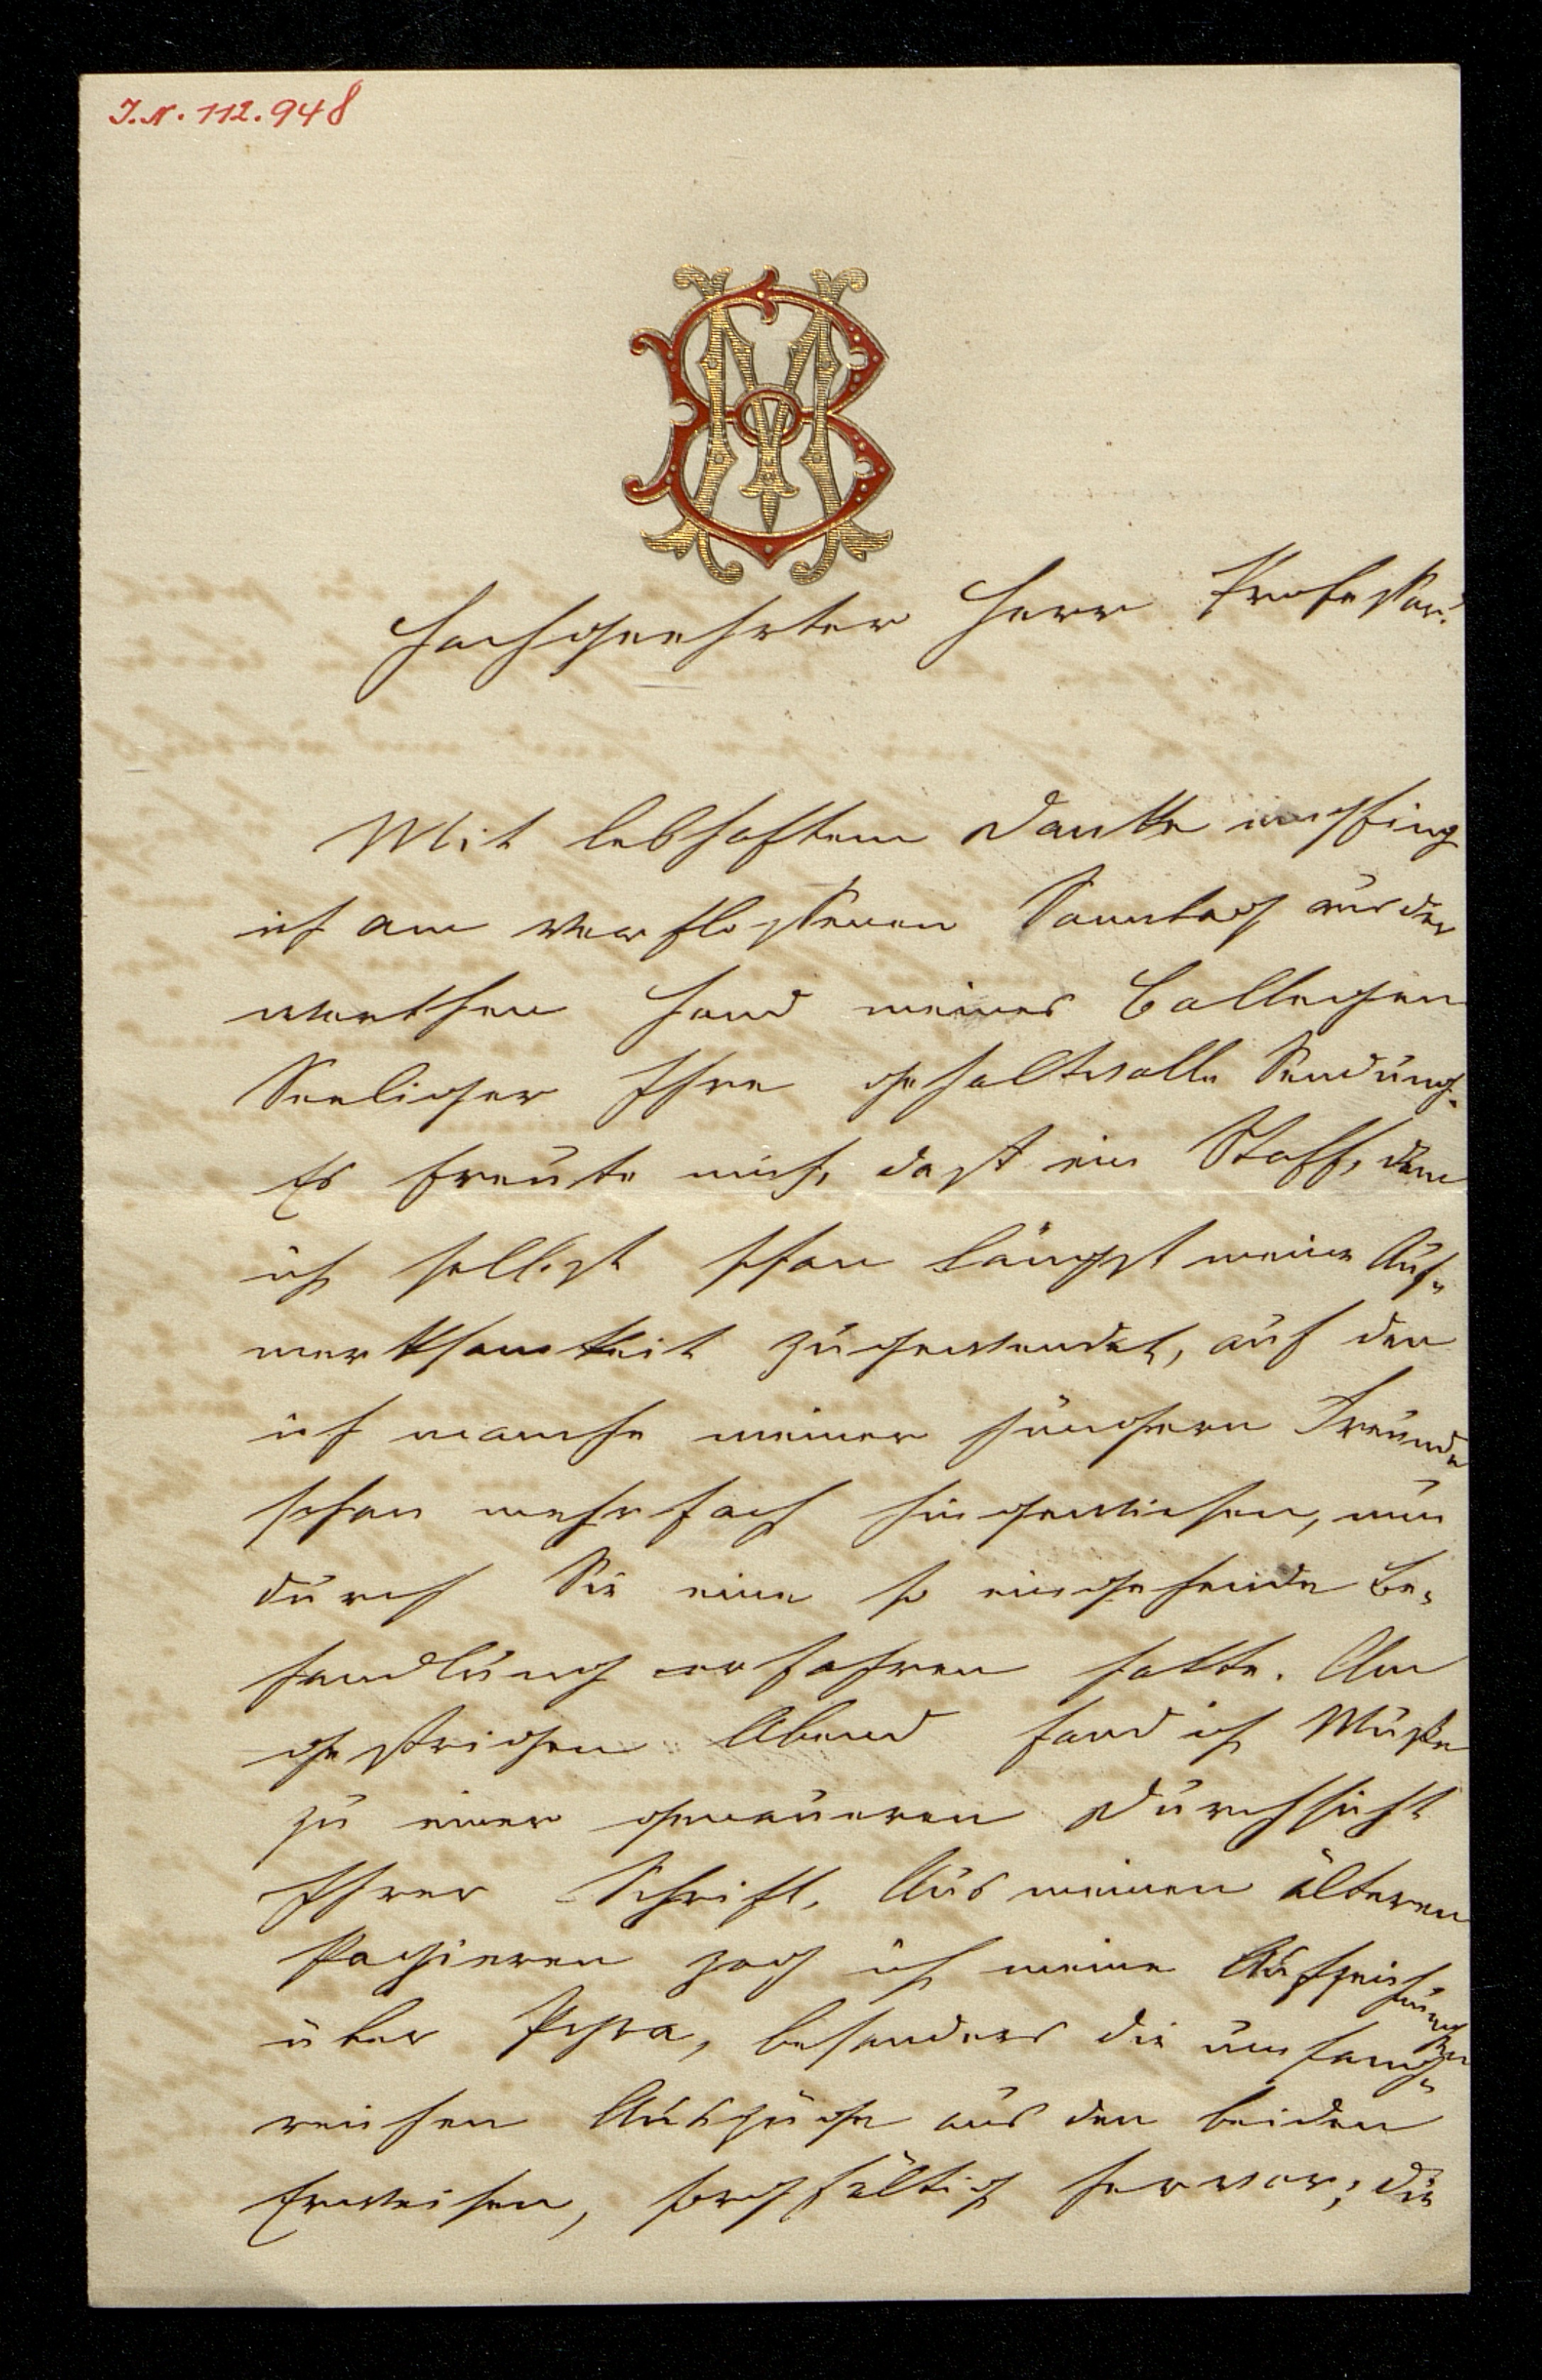 I.N. 112.948
MB
Hochgeehrter Herr Professor!
Mit lebhaftem Danke empfing
ich am verflossenen Sonntag aus der
werthen Hand meines Collegen
Seeliger Ihre gehaltvolle Sendung.
Es freute mich, dass ein Stoff, dem
ich selbst schon längst meine Auf-
merksamkeit zugewendet, auf den
ich manche meiner jüngern Freunde
schon mehrfach hingewiesen, nun
durch Sie eine so eingehende Be-
handlung erfahren hatte. Am
gestrigen Abend fand ich Musse
zu einer genaueren Durchsicht
Ihrer Schrift. Aus meinen älteren
Papieren zog ich meine Aufzeichnungen
über Pyra, besonders die umfang-
reichen Auszüge aus den beiden
Erweisen, sorgfältig hervor; die